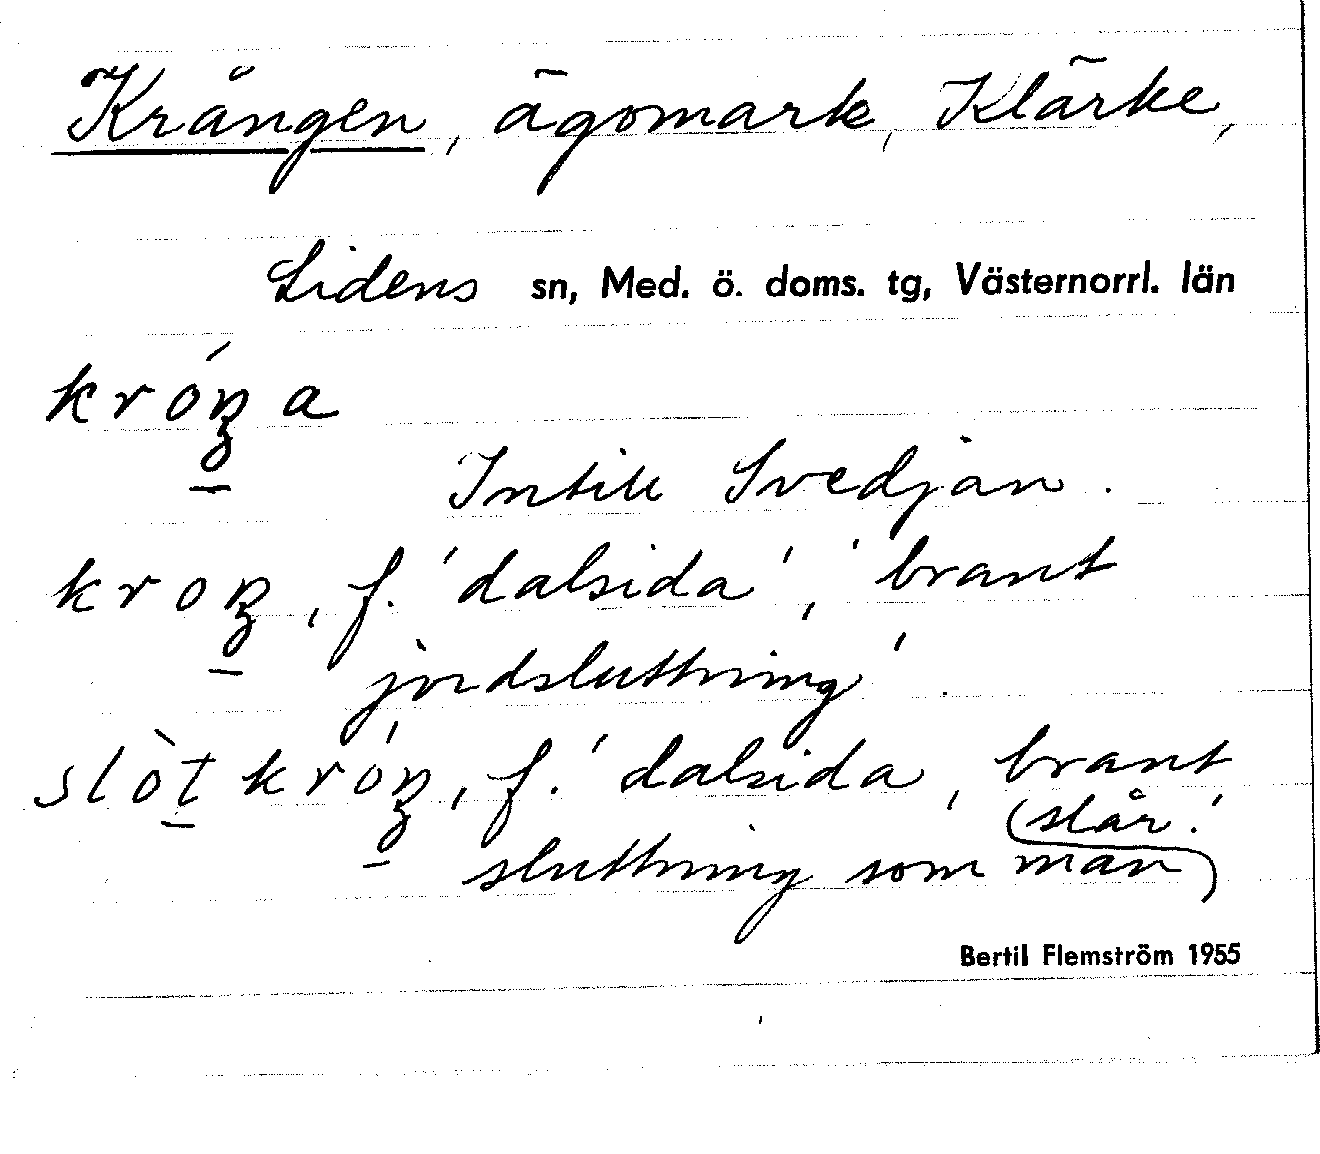 Krången, ägomark, Klärke,
Lidens sn, Med. ö. doms. tg, Västernorrl. län
króŋa
Intill Svedjan.
kroŋ, f. 'dalsida', 'brant
jordsluttning'.
slòtkróŋ, f. 'dalsida, brant
sluttning som man slår.'
Bertil Flemström 1955